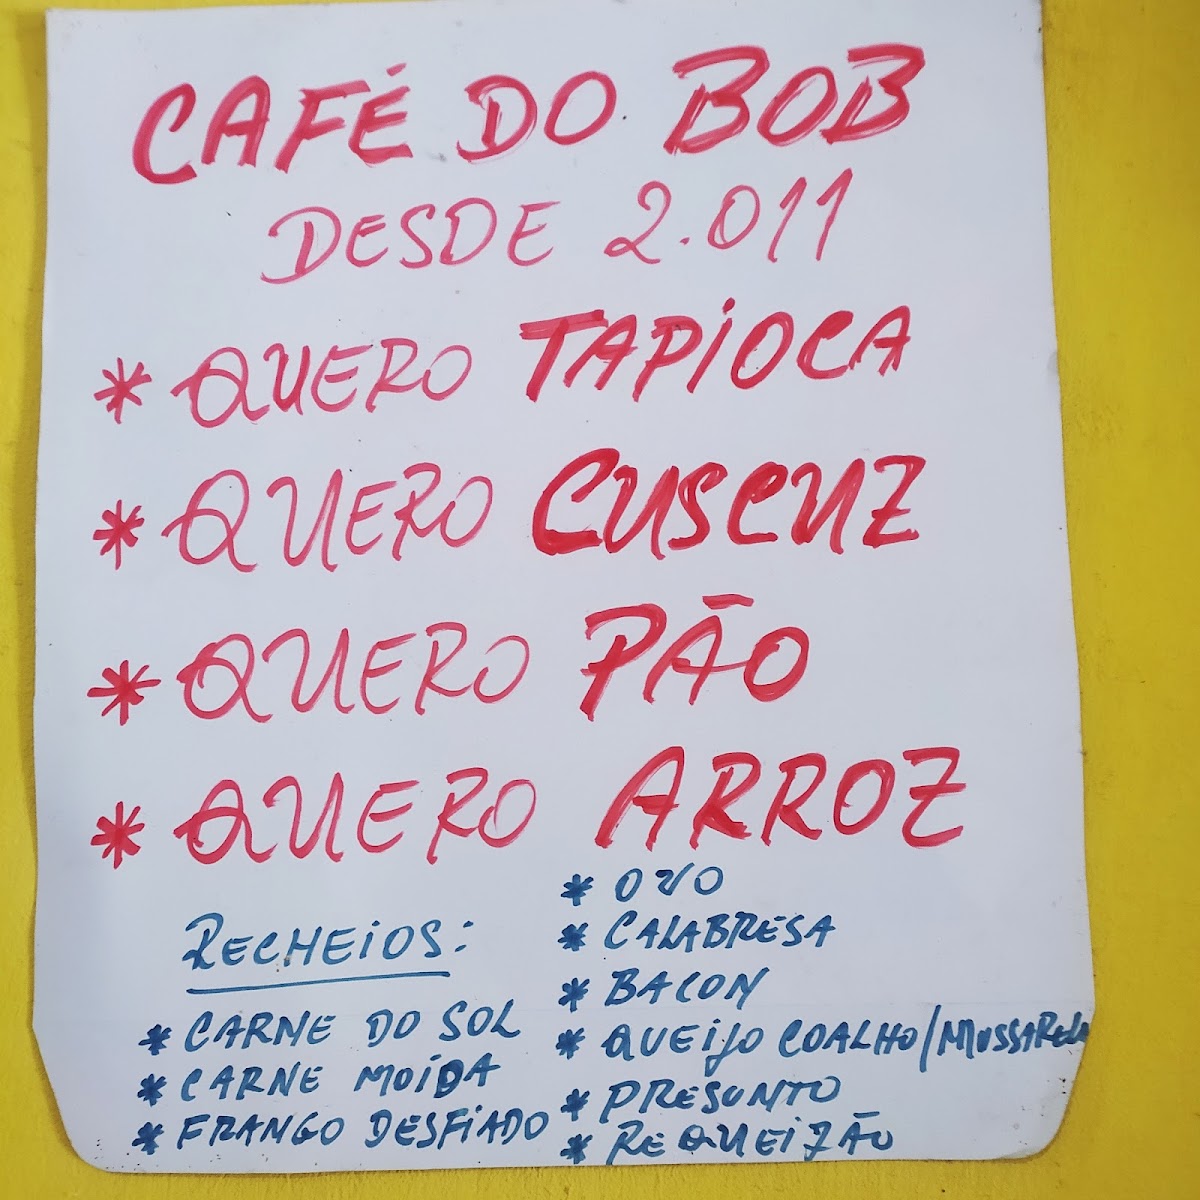 CAFÉ DO BOB
DESDE 2.011
* QUERO TAPIOCA
* QUERO CUSCUZ
* QUERO PÃO
* QUERO ARROZ
RECHEIOS:
* CARNE DO SOL
* CARNE MOÍDA
* FRANGO DESFIADO
* OVO
* CALABRESA
* BACON
* QUEIJO COALHO/MUSSARELA
* PRESUNTO
* REQUEIJÃO